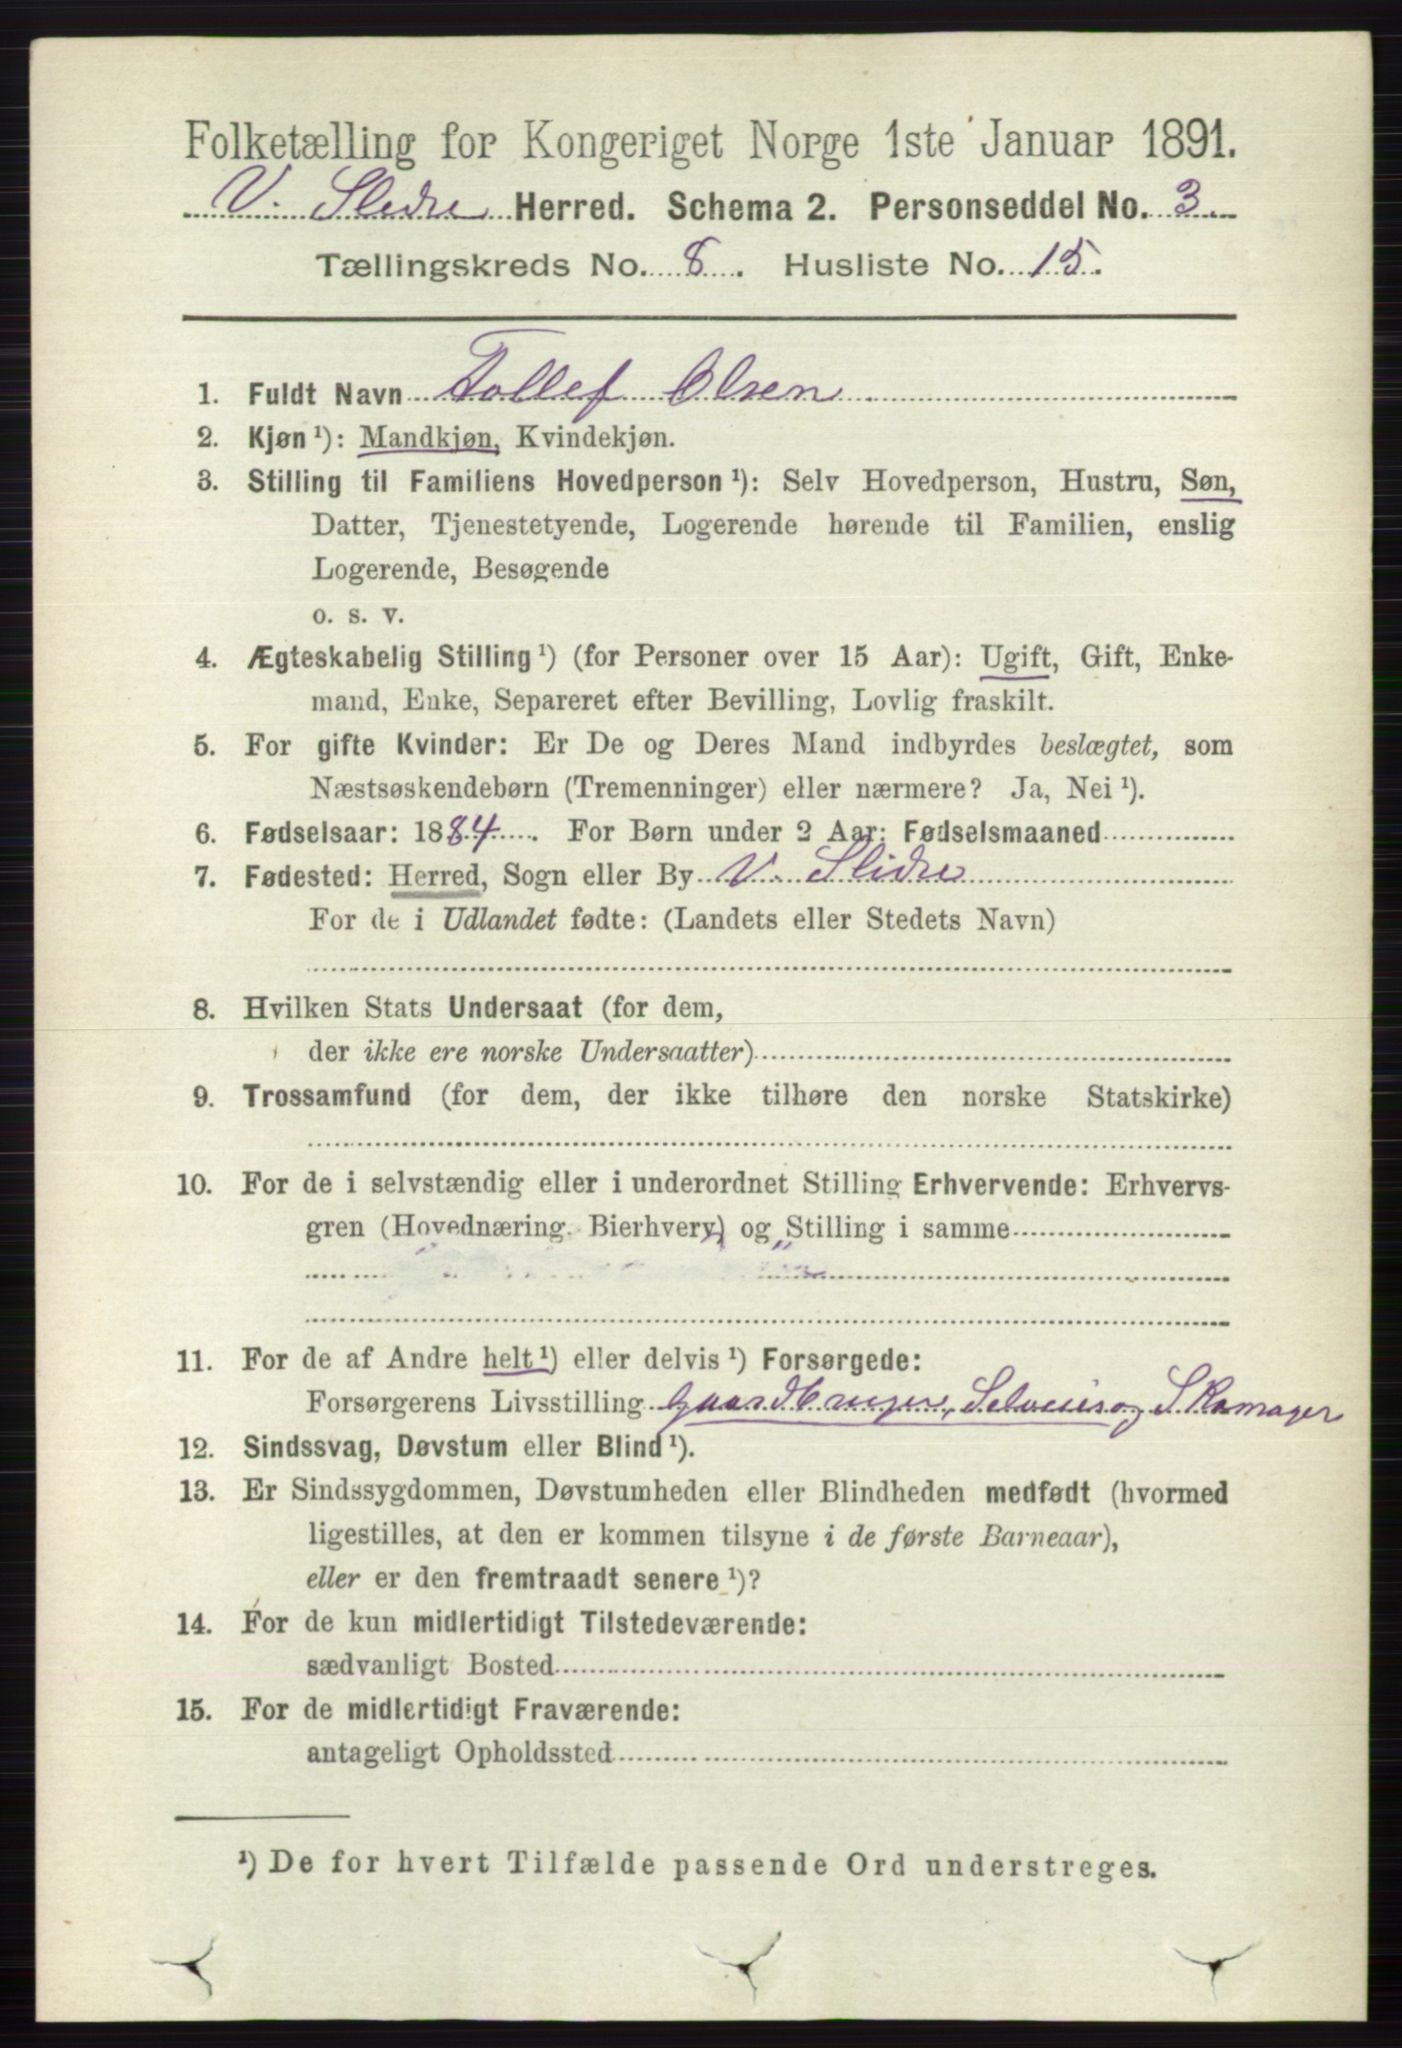 Folketælling for Kongeriget Norge 1ste Januar 1891.
V. Slidre Herred. Schema 2. Personseddel No. 3.
Tællingskreds No. 8. Husliste No. 15.
1. Fuldt Navn Tollef Olsen
2. Kjøn ¹): Mandkjøn, Kvindekjøn.
3. Stilling til Familiens Hovedperson ¹): Selv Hovedperson, Hustru, Søn,
Datter, Tjenestetyende, Logerende hørende til Familien, enslig
Logerende, Besøgende
o. s. v.
4. Ægteskabelig Stilling ¹) (for Personer over 15 Aar): Ugift, Gift, Enke-
mand, Enke, Separeret efter Bevilling, Lovlig fraskilt.
5. For gifte Kvinder: Er De og Deres Mand indbyrdes beslægtet, som
Næstsøskendebørn (Tremenninger) eller nærmere? Ja, Nei ¹).
6. Fødselsaar: 1884. For Børn under 2 Aar: Fødselsmaaned
7. Fødested: Herred, Sogn eller By V. Slidre
For de i Udlandet fødte: (Landets eller Stedets Navn)
8. Hvilken Stats Undersaat (for dem,
der ikke ere norske Undersaatter)
9. Trossamfund (for dem, der ikke tilhøre den norske Statskirke)
10. For de i selvstændig eller i underordnet Stilling Erhvervende: Erhvervs-
gren (Hovednæring, Bierhverv) og Stilling i samme
11. For de af Andre helt ¹) eller delvis ¹) Forsørgede:
Forsørgerens Livsstilling Gaardbruger, Selveier og Skomager
12. Sindssvag, Døvstum eller Blind ¹).
13. Er Sindssygdommen, Døvstumheden eller Blindheden medfødt (hvormed
ligestilles, at den er kommen tilsyne i de første Barneaar),
eller er den fremtraadt senere ¹)?
14. For de kun midlertidigt Tilstedeværende:
sædvanligt Bosted
15. For de midlertidigt Fraværende:
antageligt Opholdssted
¹) De for hvert Tilfælde passende Ord understreges.